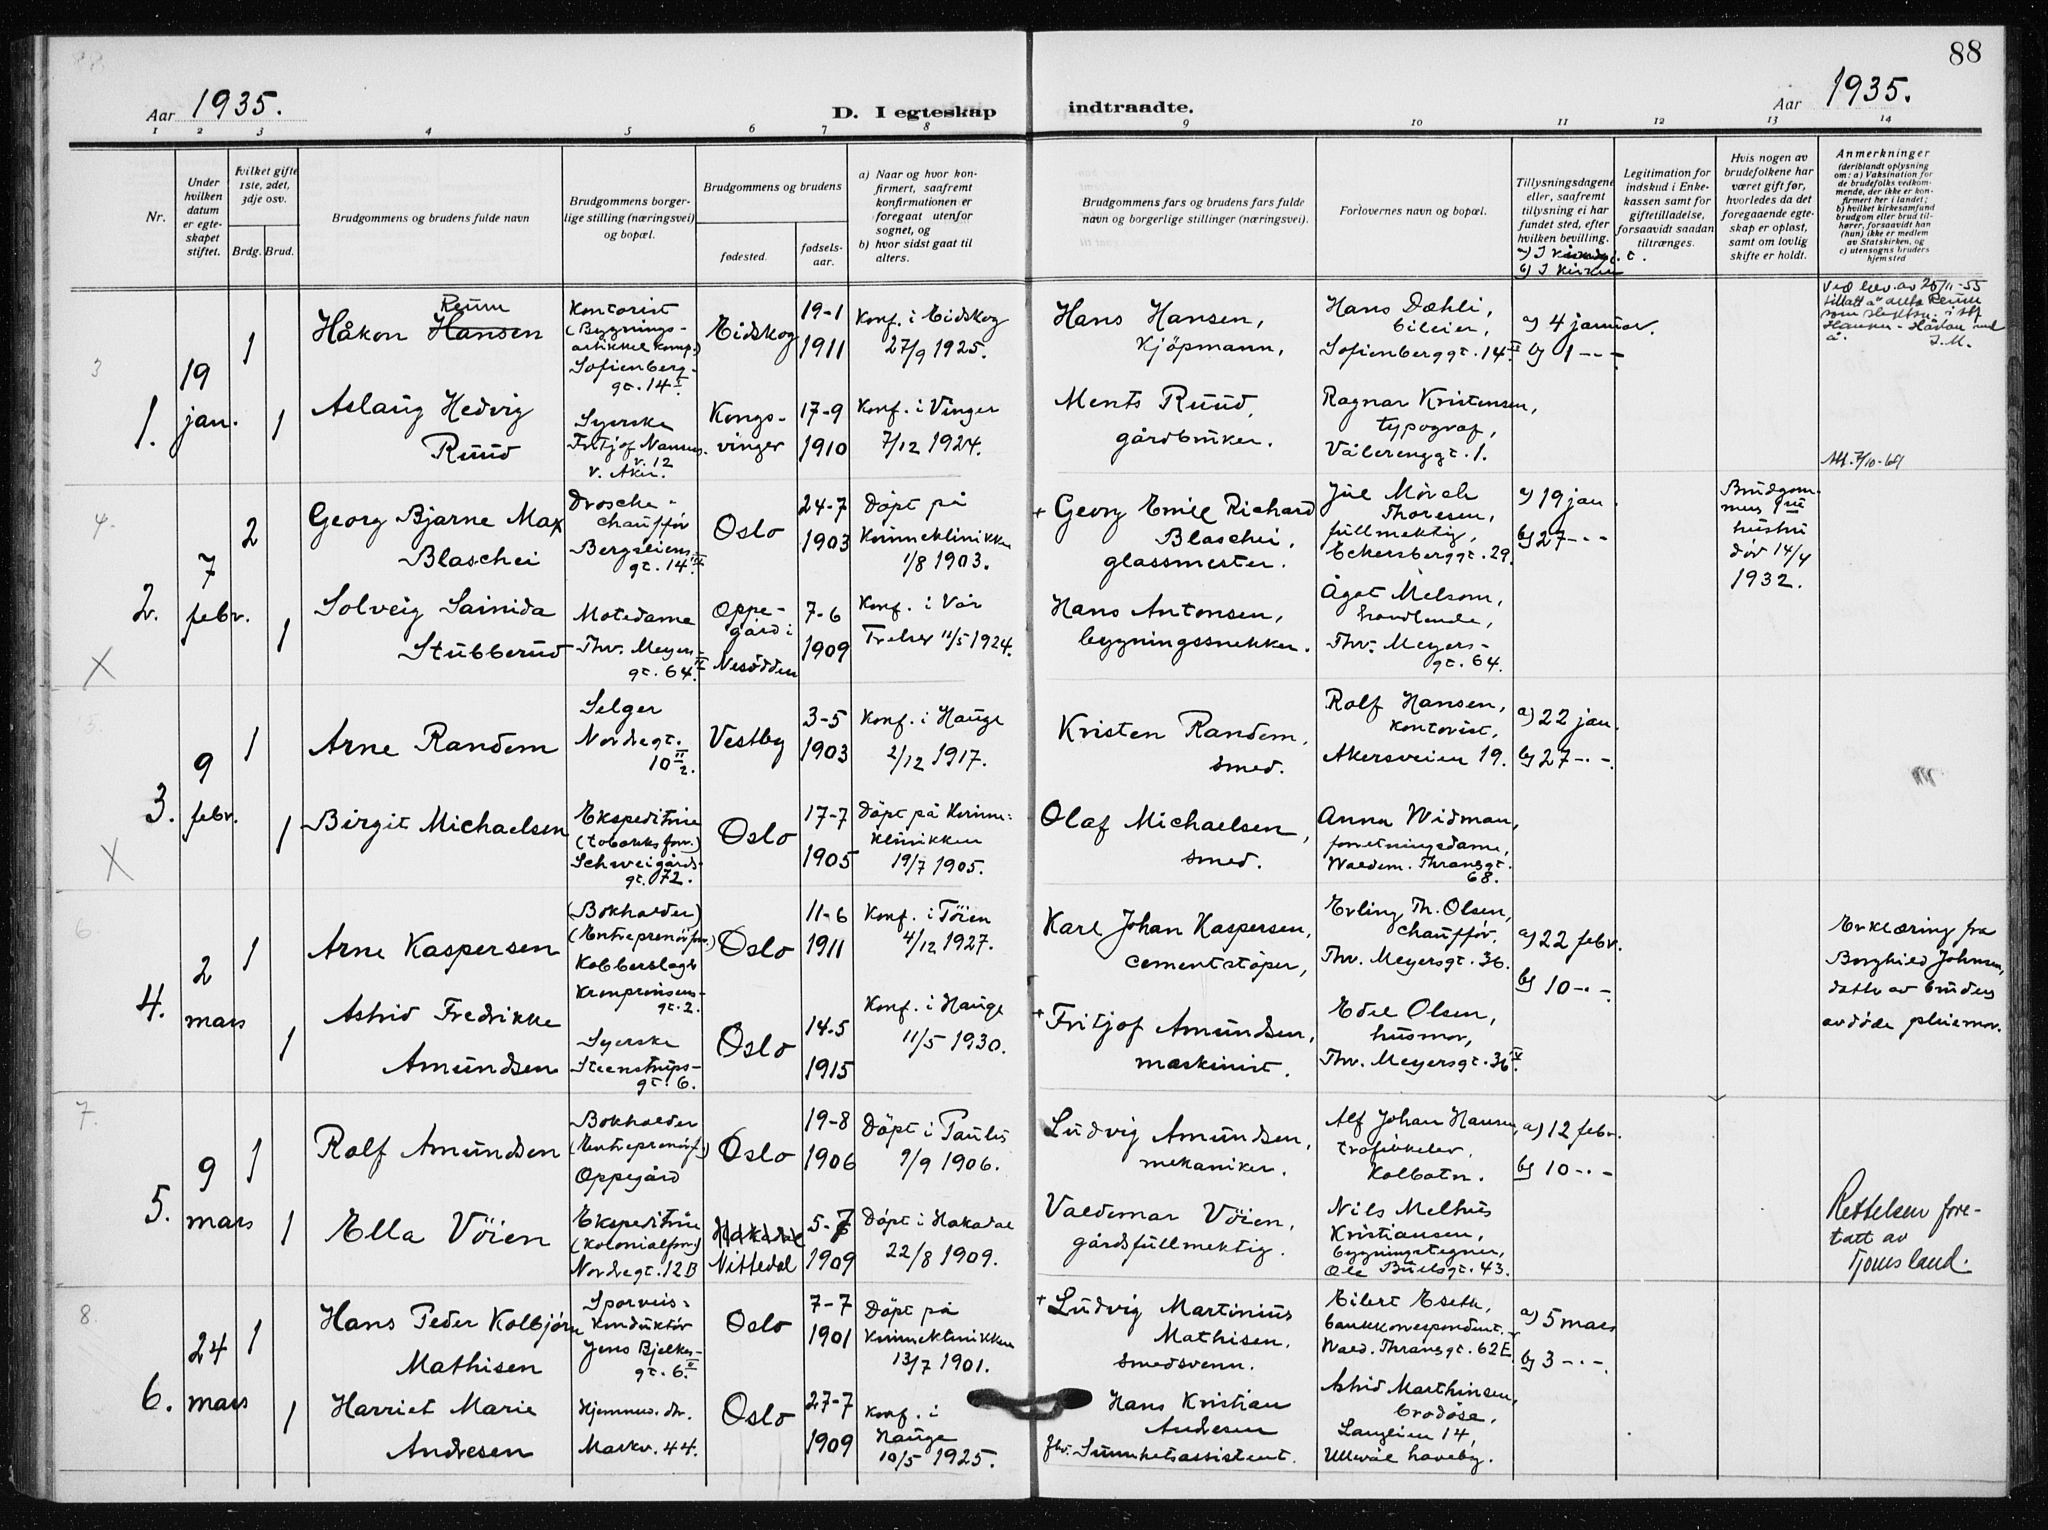 88
Aar 1935.
D. I egteskap indtraadte.
Aar 1935.
1 2 3 4 5 6 7 8 9 10 11 12 13 14
Nr.
Under
hvilken
datum
er egte-
skapet
stiftet.
Hvilket gifte
1ste, 2det,
3dje osv.
Brdg. Brud.
Brudgommens og brudens fulde navn
Brudgommens borger-
lige stilling (næringsvei)
og bopæl.
Brudgommens og brudens
fødested.
fødsels-
aar.
a) Naar og hvor kon-
firmert, saafremt
konfirmationen er
foregaat utenfor
sognet, og
b) hvor sidst gaat til
alters.
Brudgommens fars og brudens fars fulde
navn og borgerlige stillinger (næringsvei).
Forlovernes navn og bopæl.
Tillysningsdagene
eller, saafremt
tillysning ei har
fundet sted, efter
hvilken bevilling.
b) I kirken
Legitimation for
indskud i Enke-
kassen samt for
giftetilladelse,
forsaavidt saadan
tiltrænges.
Hvis nogen av
brudefolkene har
været gift før,
hvorledes da det
foregaaende egte-
skap er opløst,
samt om lovlig
skifte er holdt.
Anmerkninger
(deriblandt oplysning
om: a) Vaksination for
de brudefolks vedkom-
mende, der ikke er kon-
firmert her i landet;
b) hvilket kirkesamfund
brudgom eller brud til-
hører, forsaavidt han
(hun) ikke er medlem
av Statskirken, og
c) utensogns bruders
hjemsted
3
1.
19
jan.
1
Reum
Håkon Hansen
Kontorist
(Bygnings-
artikkel komp.)
Sofienberg-
gt. 14 I
Eidskog
19-1
1911
Konf. i Eidskog
27/9 1925.
Hans Hansen,
Kjöpmann,
Hans Dæhli,
bileier,
Sofienberggt. 14 II
a) 4 januar.
b) 1 -.-
Ved brev av 25/11-55
J.M.
1
Aslaug Hedvig
Ruud
Syerske
Fritjof Nansens
v. 12
V. Aker.
Kongs-
vinger
17-9
1910
Konf. i Vinger
7/12 1924.
Ments Ruud,
gårdbruker.
Ragnar Kristensen,
typograf,
Vålerenggt. 1.
Att. 7/10-69
4.
2.
7
febr.
2
Georg Bjarne Max
Blaschei
Drosche-
chauffør
Bergsliens-
gt. 14 III
Oslo
24-7
1903
Döpt på
Kvinneklinikken
1/8 1903.
+ Georg Emil Richard
Blaschei,
glassmester.
Jul Mörch
Thoresen,
fullmektig,
Eckersberggt. 29.
a) 19 jan.
b) 27 -.-
Brudgom-
mens
hustru
död 14/4
1932.
1
Solveig Sainida
Stubberud
Motedame
Thv. Meyers-
gt. 64. II
Oppe-
gård i
Nesödden
7-6
1909
Konf. i Vår
Frelser 11/5 1924.
Hans Antonsen,
bygningssnekker.
Ågot Melsom,
handlende,
Thv. Meyers-
gt. 64.
X
5.
3.
9
febr.
1
Arne Randem
Selger
Nordregt.
10 II 2.
Vestby
3-5
1903
Konf. i Hauge
2/12 1917.
Kristen Randem,
smed.
Rolf Hansen,
kontorist,
Akersveien 19.
a) 22 jan.
b) 27 -.-.
1
Birgit Michaelsen
Ekspeditrise
(tobakksforr.)
Schweigårds-
gt. 72.
Oslo
17-7
1905
Döpt på Kvinne-
klinikken
19/7 1905.
Olaf Michaelsen,
smed.
Anna Widman,
forretningsdame,
Waldem. Thranesgt.
68.
X
6.
4.
2
mars
1
Arne Kaspersen
(Bokholder)
(Entreprenörforr.)
Kobberslager
Kronprinsens-
gt. 2.
Oslo
11-6
1911
Konf. i Töien
4/12 1927.
Karl Johan Kaspersen,
cementstöper,
Erling Th. Olsen,
chauffør,
Thv. Meyersgt. 36.
a) 22 febr.
b) 10 -.-.
Erklæring fra
Borghild Johnsen,
datter av brudens
avdöde pleiemor.
1
Astrid Fredrikke
Amundsen
Syerske
Steenstrups-
gt. 6.
Oslo
14-5
1915
Konf. i Hauge
11/5 1930.
+ Fritjof Amundsen,
maskinist.
Edel Olsen,
husmor,
Thv. Meyersgt. 36 IV.
7.
5.
9
mars
1
Rolf Amundsen
Bokholder
(Entreprenörf.)
Oppegård
Oslo
19-8
1906
Döpt i Paulus
9/9 1906.
Ludvig Amundsen,
mekaniker.
Alf Johan Hansen,
trafikkelev,
Kolbotn.
a) 12 febr.
b) 10 -.-
1
Ella Vöien
Ekspeditrise
(Kolonialforr.)
Nordregt. 12B
Hakadal
Nittedal
5-7
1909
Döpt i Hakadal
22/8 1909.
Valdemar Vöien,
gårdsfullmektig.
Nils Melhus
Kristiansen,
bygningstegner,
Ole Bulls gt. 43.
Rettelsen fore-
tatt av
Tjomsland.
8.
6.
24
mars
1
Hans Peder Kolbjörn
Mathisen
Sporveis-
konduktör
Jens Bjelkes-
gt. 6. II
Oslo
7-7
1901
Döpt på
Kvinneklinikken
13/7 1901.
+ Ludvig Martinius
Mathisen,
smedsvenn.
Eilert Eseth,
bankkorrespondent.
Wald. Thranesgt. 62E.
a) 5 mars
b) 3 -.-.
1
Harriet Marie
Andresen
Hjemmev. dtr.
Markv. 44.
Oslo
27-7
1909
Konf. i
Hauge
10/5 1925.
Hans Kristian
Andresen
fhv. Sunnhetsassistent.
Astrid Marthinsen,
brodöse,
Langlien 14,
Ullevål haveby.